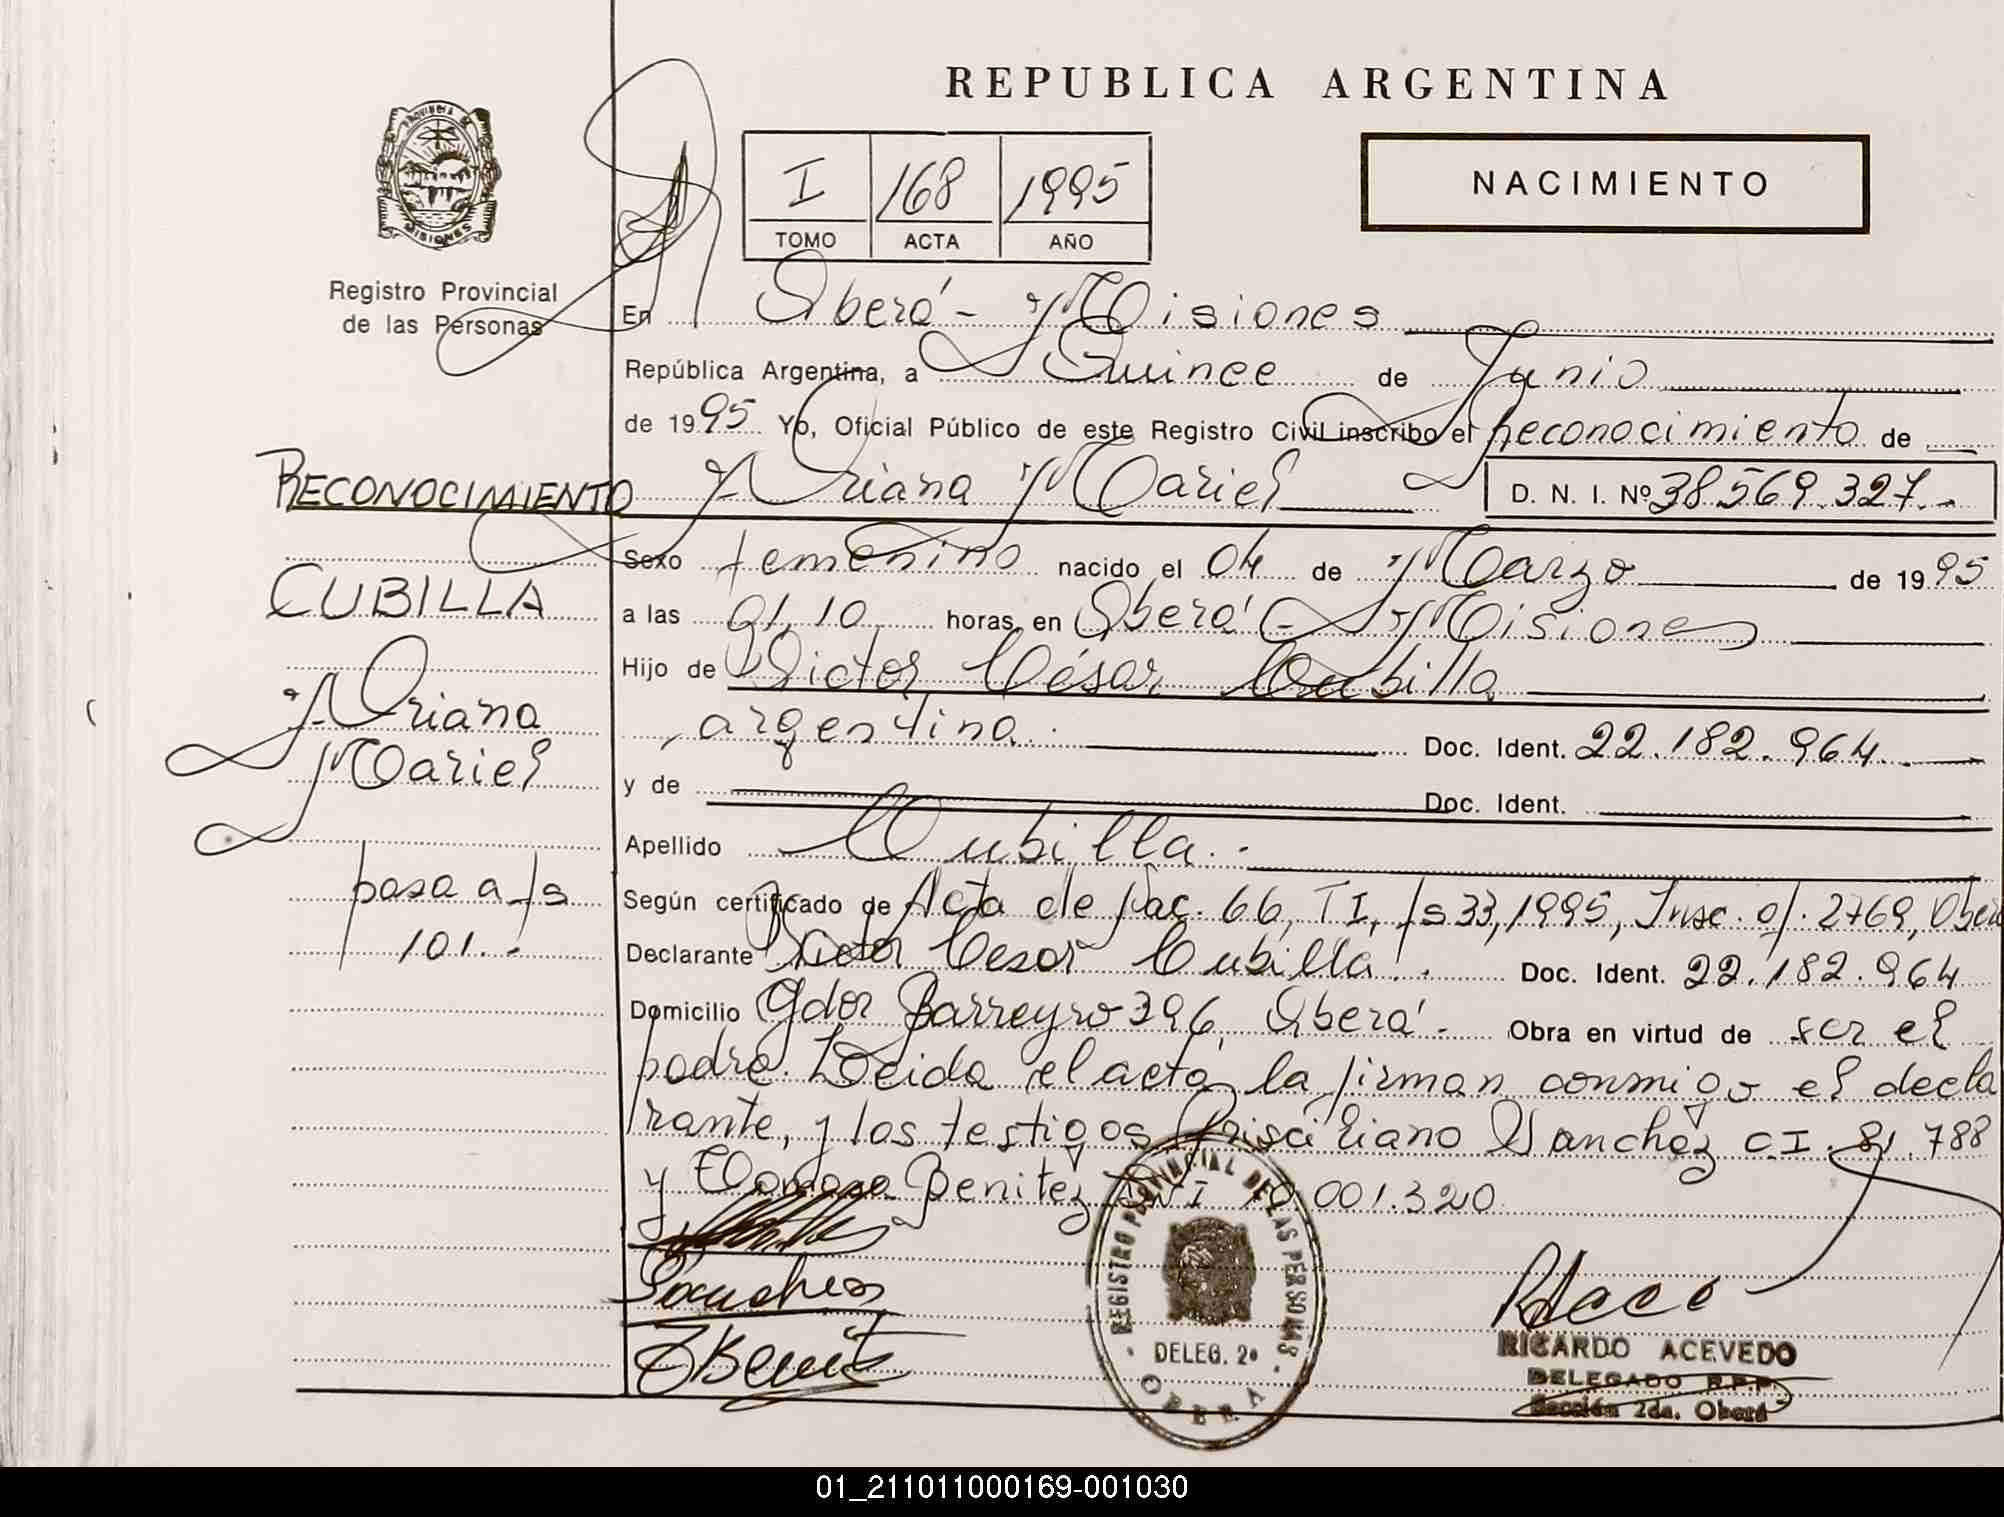 REPUBLICA ARGENTINA
PROVINCIA DE
MISIONES
Registro Provincial
de las Personas
I 168 1995
TOMO ACTA AÑO
NACIMIENTO
En Oberá - Misiones
República Argentina, a Quince de Junio
de 1995 Yo, Oficial Público de este Registro Civil inscribo el Reconocimiento de
RECONOCIMIENTO
Ariana Mariel D. N. I. Nº 38.569.327.-
Sexo femenino nacido el 04 de Marzo de 1995
CUBILLA
a las 01,10 horas, en Oberá - Misiones
Hijo de Victor César Cubilla
Ariana
, argentino. Doc. Ident. 22.182.964.
Mariel
y de Doc. Ident.
Apellido Cubilla.-
pasa a fs
101.-
Según certificado de Acta de Nac. 66, TI, fs 33, 1995, Insc. of. 2769, Oberá
Declarante Victor Cesar Cubilla. Doc. Ident. 22.182.964
Domicilio Gdor Barreyro 396, Oberá.- Obra en virtud de ser el
padre. Leida el acta, la firman conmigo el decla
rante, y los testigos Prisciliano Sanchez C.I. 81.788
y Benitez DNI 001.320
Sanchez
REGISTRO PROVINCIAL DE LAS PERSONAS
DELEG. 2ª
OBERA
RICARDO ACEVEDO
DELEGADO R.P.P.
Sección 2da. Oberá
01_211011000169-001030